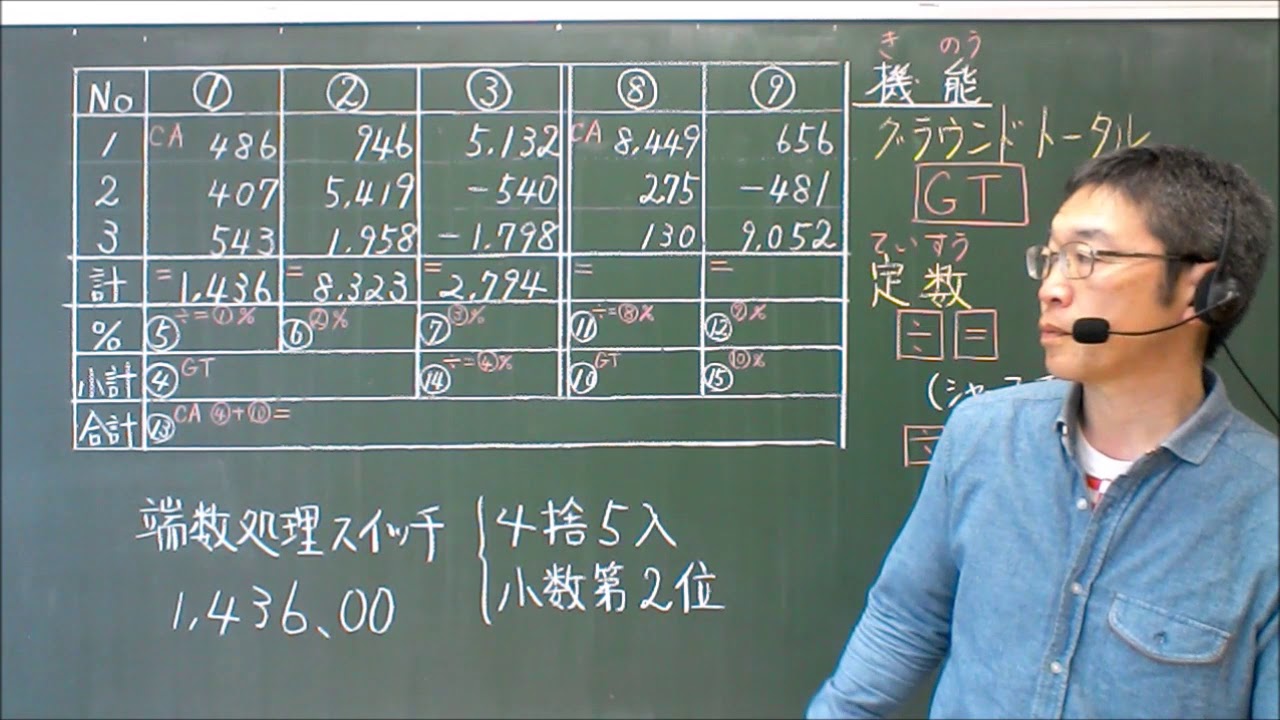 No ① ② ③ ⑧ ⑨
1 CA 486 946 5.132 CA 8.449 656
2 407 5.419 -540 275 -481
3 543 1.958 -1.798 130 9.052
計 =1.436 =8.323 =2.794 = =
% ⑤÷=①% ⑥②% ⑦③% ⑪÷=⑧% ⑫⑨%
小計 ④GT ⑭÷=④% ⑩GT ⑮⑩%
合計 ⑬CA ④+⑩=
端数処理スイッチ
4捨5入
小数第2位
1.436、00
きのう
機能
グラウンドトータル
GT
ていすう
定数
÷ =
(シャ
÷